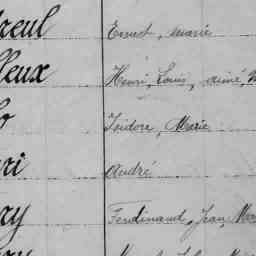 reul Ernest, Marie
lleux Henri, Louis, aimé,
Isidore, Marie
ri André
ry Ferdinand, Jean, Mar